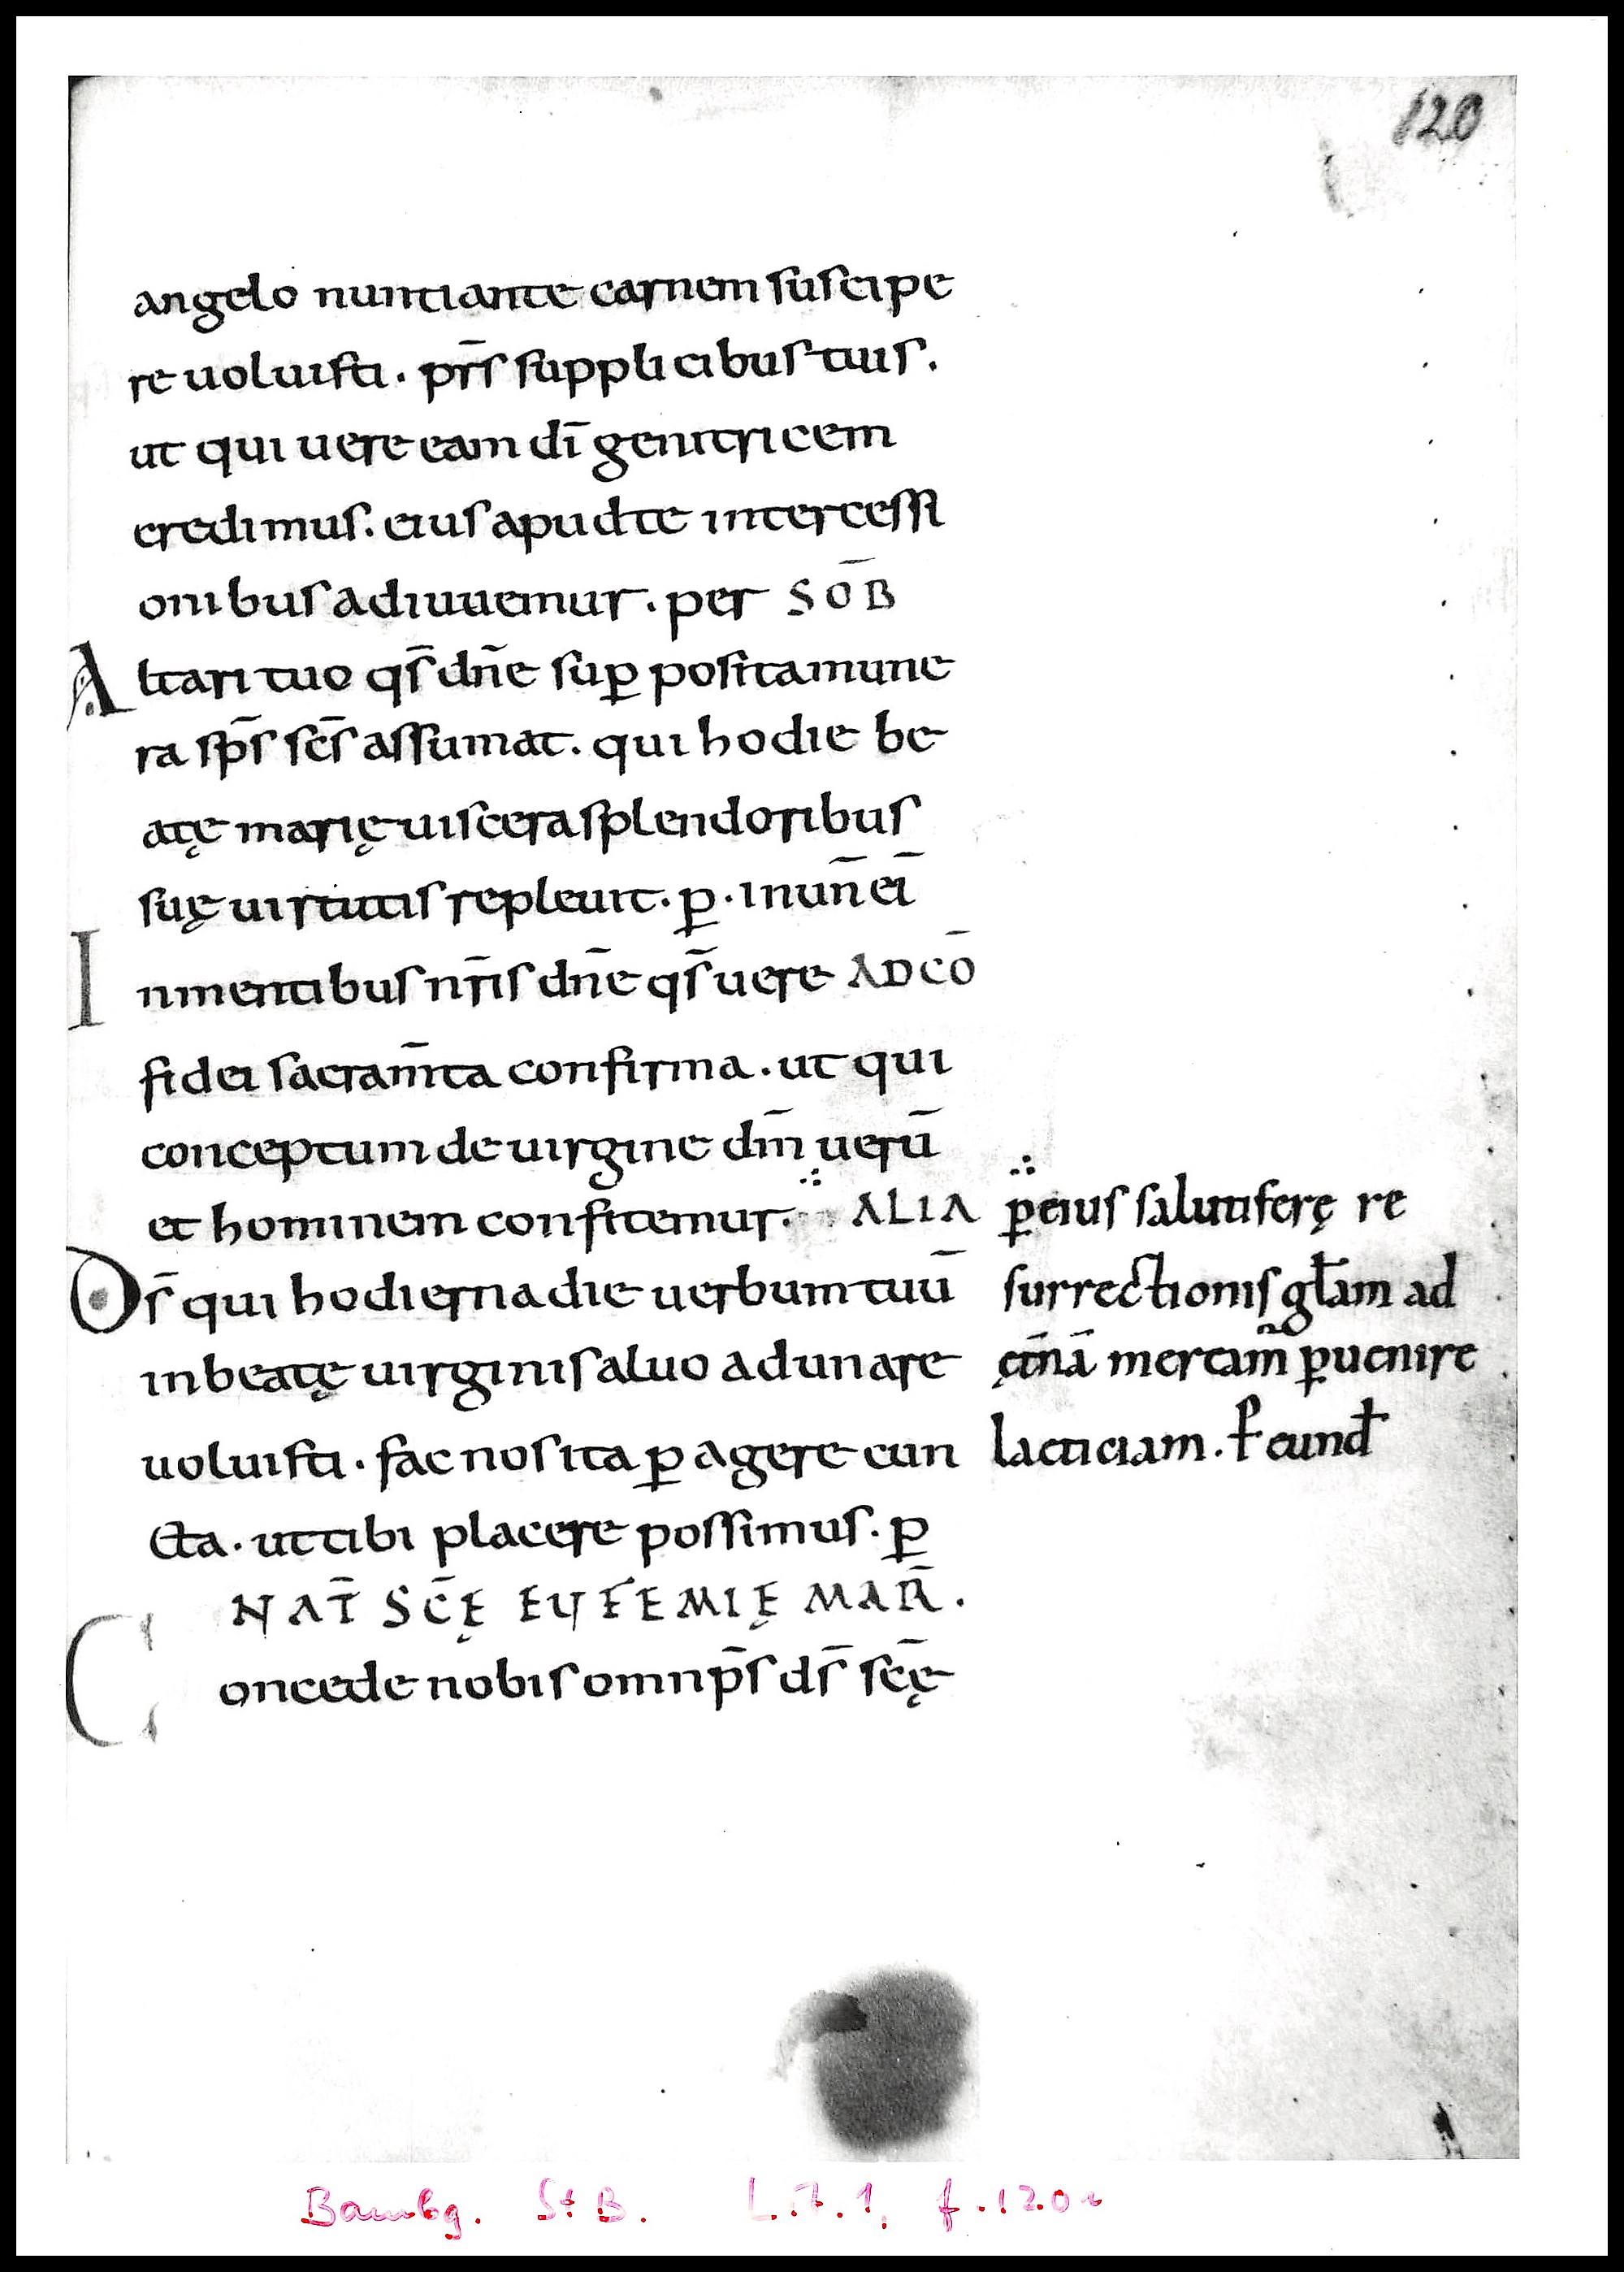 120
angelo nuntiante carnem suscipe
re uoluisti. pr̄s supplicibus tuis.
ut qui uere eam dī genitricem
credimus. eius apud te intercessi
onibus adiuuemur. per SŌB
Altari tuo qs̄ dn̄e sup̲ posita mune
ra sp̄s sc̄s assumat. qui hodie be
atę marię uiscera splendoribus
suę uirtutis repleuit. p̲. in un̄ eī
In mentibus nr̄is dn̄e qs̄ uere AD CŌ
fidei sacram̄ta confirma. ut qui
conceptum de uirgine dm̄ uerū
et hominem confitemur. ALIA
Ds̄ qui hodierna die uerbum tuū
in beatę uirginis aluo adunare
uoluisti. fac nos ita p̲agere cun
cta. ut tibi placere possimus. p̲
NAT̄ SC̄Ę EUFEMIĘ MAR̄.
Concede nobis omnip̄s ds̄ sc̄ę
p̲ eius salutiferę re
surrectionis gl̄am ad
ęt̄nā meream̄ p̲uenire
laeticiam. P̵ eund̄
Bambg. StB. Lit. 1, f. 120r